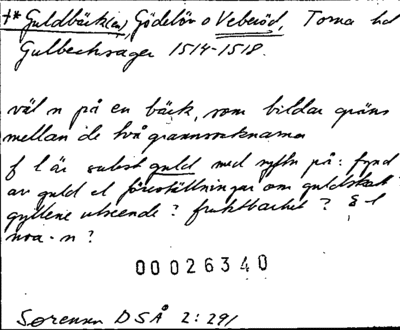 †* Guldbäck(en), Gödelöv o Veberöd, Torna hd
Gulbecksager 1514-1518.
väl n på en bäck, som bildar gräns
mellan de två grannsocknarna
f l är subst guld med syftn på: fynd
av guld el föreställningar om guldskatt
gyllene utseende? fruktbarhet?
noa-n?
00026340
Sørensen DSÅ 2:291